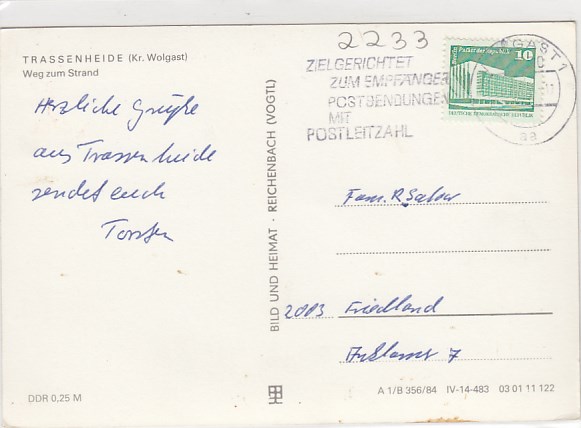 TRASSENHEIDE (Kr. Wolgast)
Weg zum Strand
Herzliche Grüße
aus Trassenheide
sendet euch
Torsten
BILD UND HEIMAT · REICHENBACH (VOGTL)
2233
ZIELGERICHTET
ZUM EMPFÄNGER
POSTSENDUNGEN
MIT
POSTLEITZAHL
GAST 1
aa
10
DEUTSCHE DEMOKRATISCHE REPUBLIK
Fam. R. Salow
2003 Friedland
7
DDR 0,25 M
A 1/B 356/84 IV-14-483 03 01 11 122